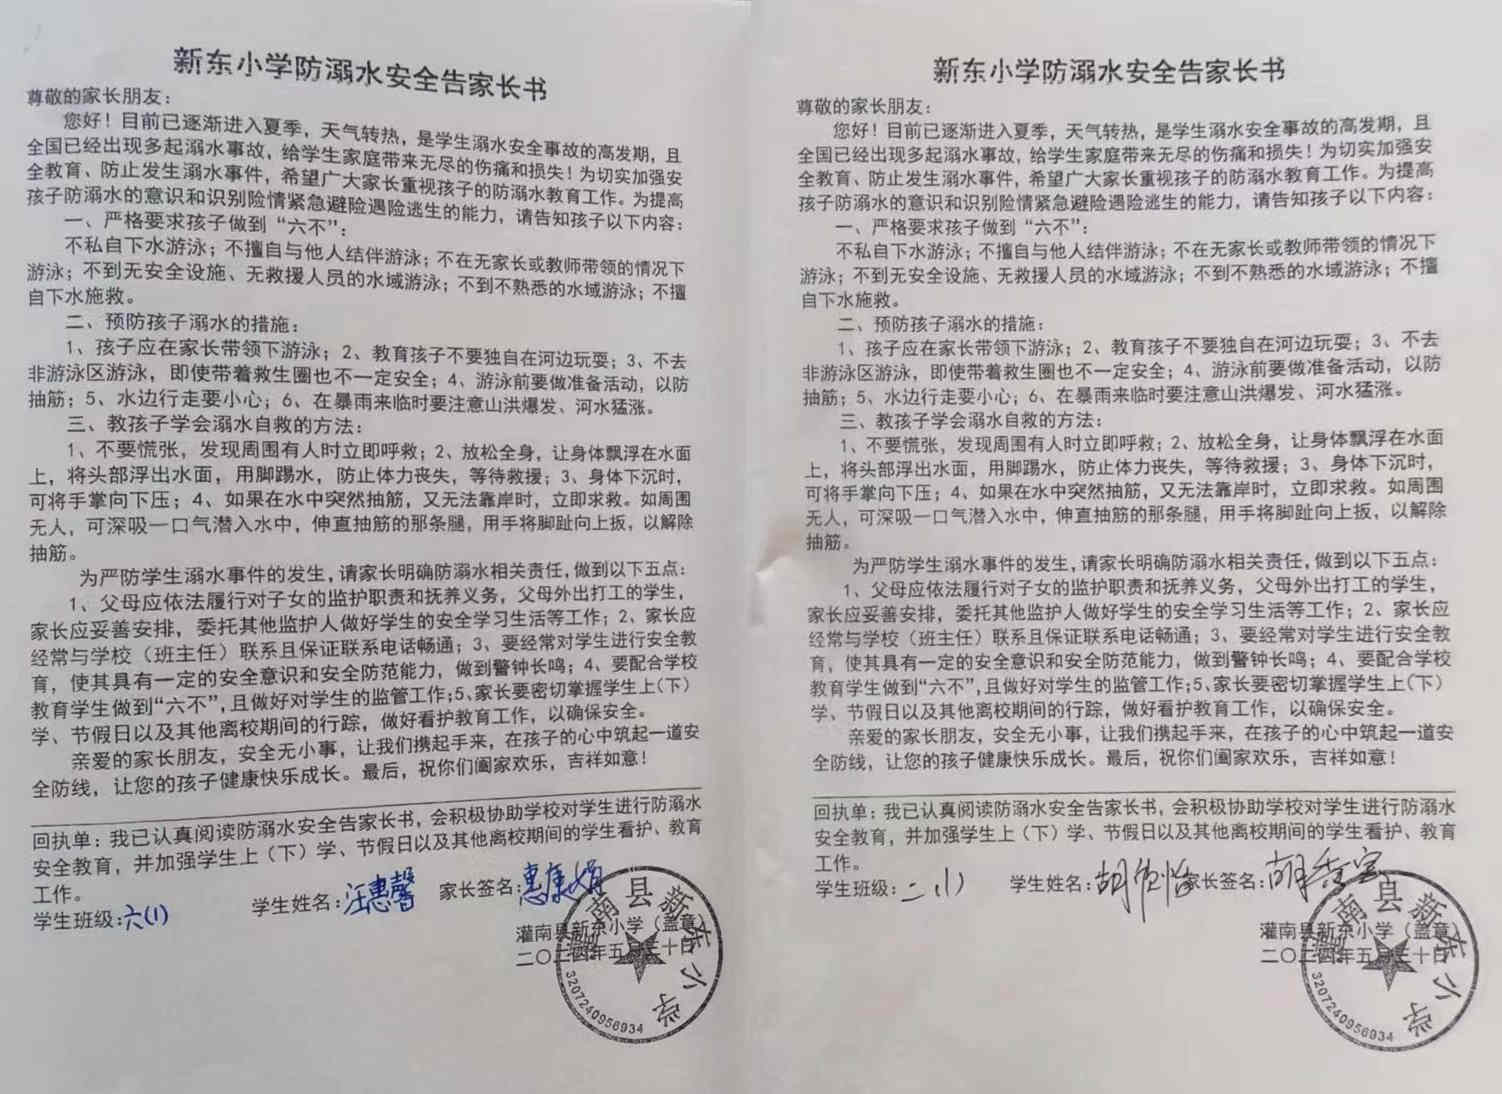 新东小学防溺水安全告家长书
尊敬的家长朋友：
您好！目前已逐渐进入夏季，天气转热，是学生溺水安全事故的高发期，且
全国已经出现多起溺水事故，给学生家庭带来无尽的伤痛和损失！为切实加强安
全教育、防止发生溺水事件，希望广大家长重视孩子的防溺水教育工作。为提高
孩子防溺水的意识和识别险情紧急避险遇险逃生的能力，请告知孩子以下内容：
一、严格要求孩子做到“六不”：
不私自下水游泳；不擅自与他人结伴游泳；不在无家长或教师带领的情况下
游泳；不到无安全设施、无救援人员的水域游泳；不到不熟悉的水域游泳；不擅
自下水施救。
二、预防孩子溺水的措施：
1、孩子应在家长带领下游泳；2、教育孩子不要独自在河边玩耍；3、不去
非游泳区游泳，即使带着救生圈也不一定安全；4、游泳前要做准备活动，以防
抽筋；5、水边行走要小心；6、在暴雨来临时要注意山洪爆发、河水猛涨。
三、教孩子学会溺水自救的方法：
1、不要慌张，发现周围有人时立即呼救；2、放松全身，让身体飘浮在水面
上，将头部浮出水面，用脚踢水，防止体力丧失，等待救援；3、身体下沉时，
可将手掌向下压；4、如果在水中突然抽筋，又无法靠岸时，立即求救。如周围
无人，可深吸一口气潜入水中，伸直抽筋的那条腿，用手将脚趾向上扳，以解除
抽筋。
为严防学生溺水事件的发生，请家长明确防溺水相关责任，做到以下五点：
1、父母应依法履行对子女的监护职责和抚养义务，父母外出打工的学生，
家长应妥善安排，委托其他监护人做好学生的安全学习生活等工作；2、家长应
经常与学校（班主任）联系且保证联系电话畅通；3、要经常对学生进行安全教
育，使其具有一定的安全意识和安全防范能力，做到警钟长鸣；4、要配合学校
教育学生做到“六不”，且做好对学生的监管工作；5、家长要密切掌握学生上（下）
学、节假日以及其他离校期间的行踪，做好看护教育工作，以确保安全。
亲爱的家长朋友，安全无小事，让我们携起手来，在孩子的心中筑起一道安
全防线，让您的孩子健康快乐成长。最后，祝你们阖家欢乐，吉祥如意！
回执单：我已认真阅读防溺水安全告家长书，会积极协助学校对学生进行防溺水
安全教育，并加强学生上（下）学、节假日以及其他离校期间的学生看护、教育
工作。
学生班级：六(1) 学生姓名：汪惠馨 家长签名：惠康娟
灌南县新东小学（盖章）
二〇二四年五月三十日
灌南县新东小学
3207240956934
新东小学防溺水安全告家长书
尊敬的家长朋友：
您好！目前已逐渐进入夏季，天气转热，是学生溺水安全事故的高发期，且
全国已经出现多起溺水事故，给学生家庭带来无尽的伤痛和损失！为切实加强安
全教育、防止发生溺水事件，希望广大家长重视孩子的防溺水教育工作。为提高
孩子防溺水的意识和识别险情紧急避险遇险逃生的能力，请告知孩子以下内容：
一、严格要求孩子做到“六不”：
不私自下水游泳；不擅自与他人结伴游泳；不在无家长或教师带领的情况下
游泳；不到无安全设施、无救援人员的水域游泳；不到不熟悉的水域游泳；不擅
自下水施救。
二、预防孩子溺水的措施：
1、孩子应在家长带领下游泳；2、教育孩子不要独自在河边玩耍；3、不去
非游泳区游泳，即使带着救生圈也不一定安全；4、游泳前要做准备活动，以防
抽筋；5、水边行走要小心；6、在暴雨来临时要注意山洪爆发、河水猛涨。
三、教孩子学会溺水自救的方法：
1、不要慌张，发现周围有人时立即呼救；2、放松全身，让身体飘浮在水面
上，将头部浮出水面，用脚踢水，防止体力丧失，等待救援；3、身体下沉时，
可将手掌向下压；4、如果在水中突然抽筋，又无法靠岸时，立即求救。如周围
无人，可深吸一口气潜入水中，伸直抽筋的那条腿，用手将脚趾向上扳，以解除
抽筋。
为严防学生溺水事件的发生，请家长明确防溺水相关责任，做到以下五点：
1、父母应依法履行对子女的监护职责和抚养义务，父母外出打工的学生，
家长应妥善安排，委托其他监护人做好学生的安全学习生活等工作；2、家长应
经常与学校（班主任）联系且保证联系电话畅通；3、要经常对学生进行安全教
育，使其具有一定的安全意识和安全防范能力，做到警钟长鸣；4、要配合学校
教育学生做到“六不”，且做好对学生的监管工作；5、家长要密切掌握学生上（下）
学、节假日以及其他离校期间的行踪，做好看护教育工作，以确保安全。
亲爱的家长朋友，安全无小事，让我们携起手来，在孩子的心中筑起一道安
全防线，让您的孩子健康快乐成长。最后，祝你们阖家欢乐，吉祥如意！
回执单：我已认真阅读防溺水安全告家长书，会积极协助学校对学生进行防溺水
安全教育，并加强学生上（下）学、节假日以及其他离校期间的学生看护、教育
工作。
学生班级：二(1) 学生姓名： 家长签名：
灌南县新东小学（盖章）
二〇二四年五月三十日
灌南县新东小学
3207240956934